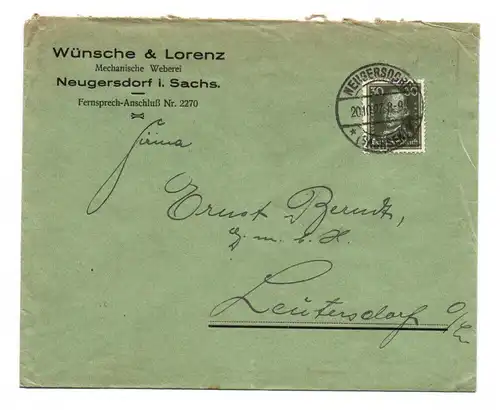 Wünsche & Lorenz
Mechanische Weberei
Neugersdorf i. Sachs.
Fernsprech-Anschluß Nr. 2270
NEUGERSDORF
(SACHSEN)
30 30
Firma
Ernst Berndt,
G.m.b.H.
Leutersdorf O/